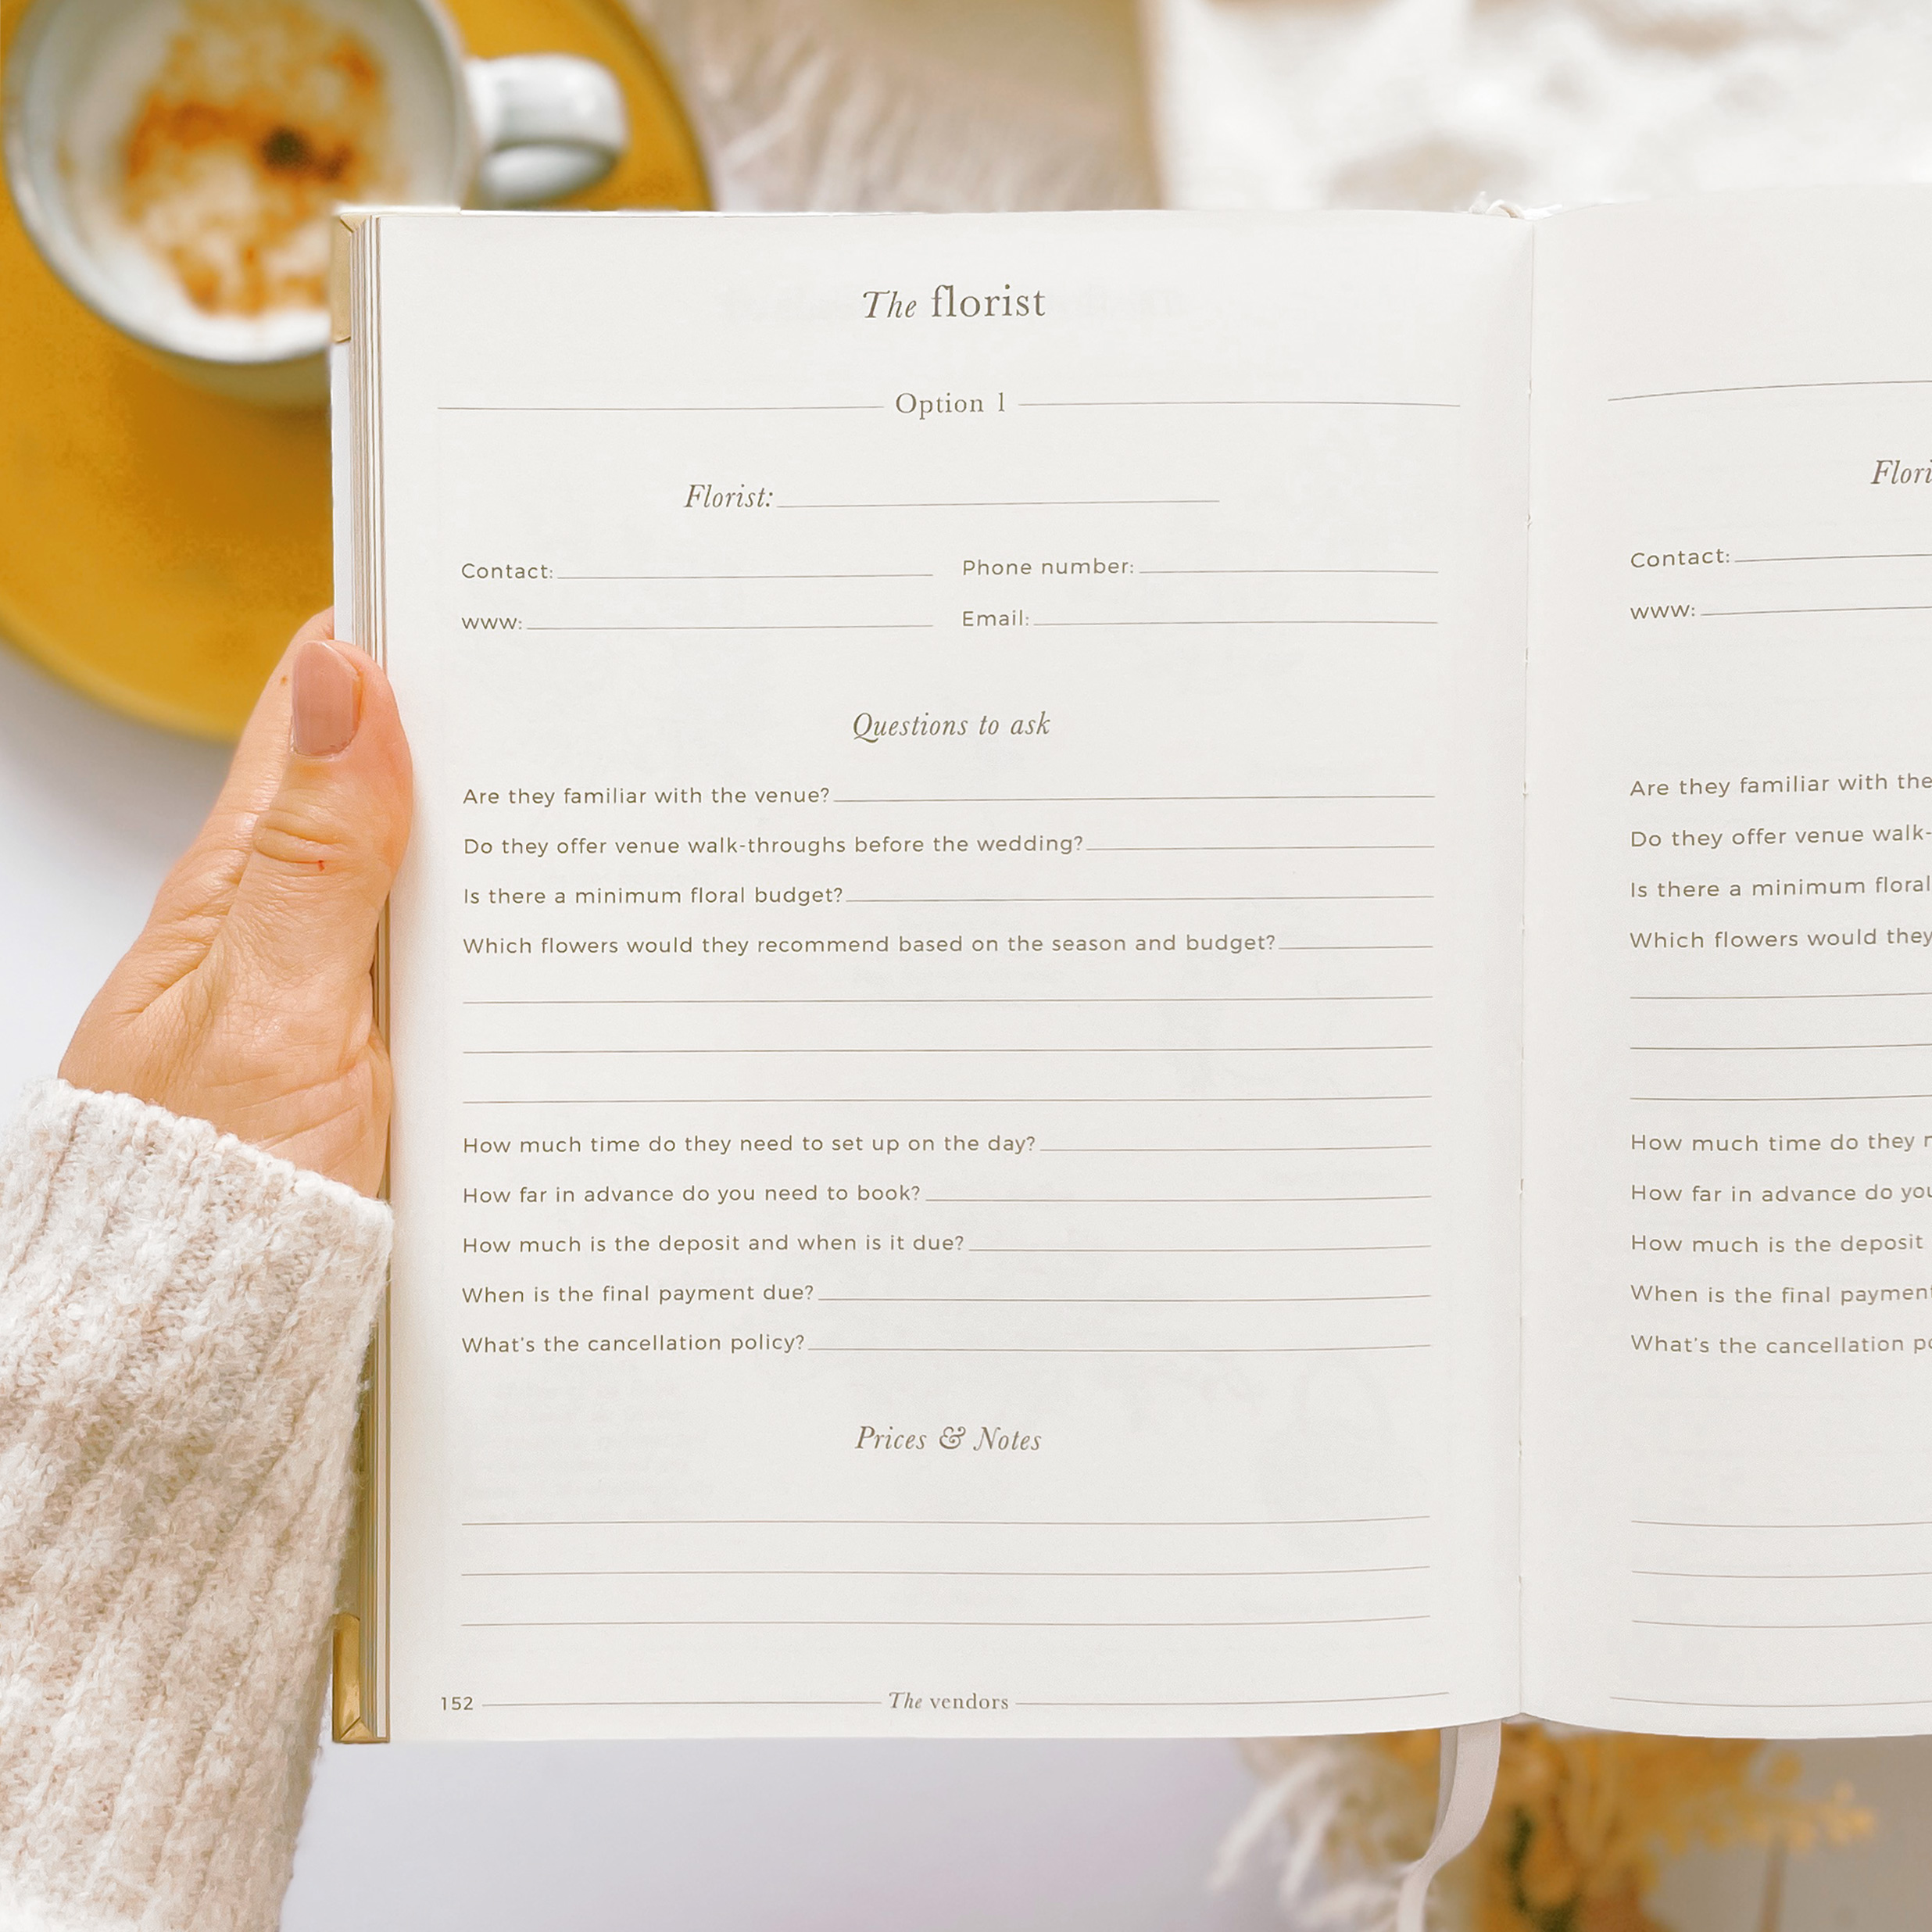 The florist
Option 1
Florist:
Contact: Phone number:
www: Email:
Questions to ask
Are they familiar with the venue?
Do they offer venue walk-throughs before the wedding?
Is there a minimum floral budget?
Which flowers would they recommend based on the season and budget?
How much time do they need to set up on the day?
How far in advance do you need to book?
How much is the deposit and when is it due?
When is the final payment due?
What's the cancellation policy?
Prices & Notes
152 The vendors
Flori
Contact:
www:
Are they familiar with the
Do they offer venue walk-
Is there a minimum floral
Which flowers would they
How much time do they
How far in advance do you
How much is the deposit
When is the final payment
What's the cancellation